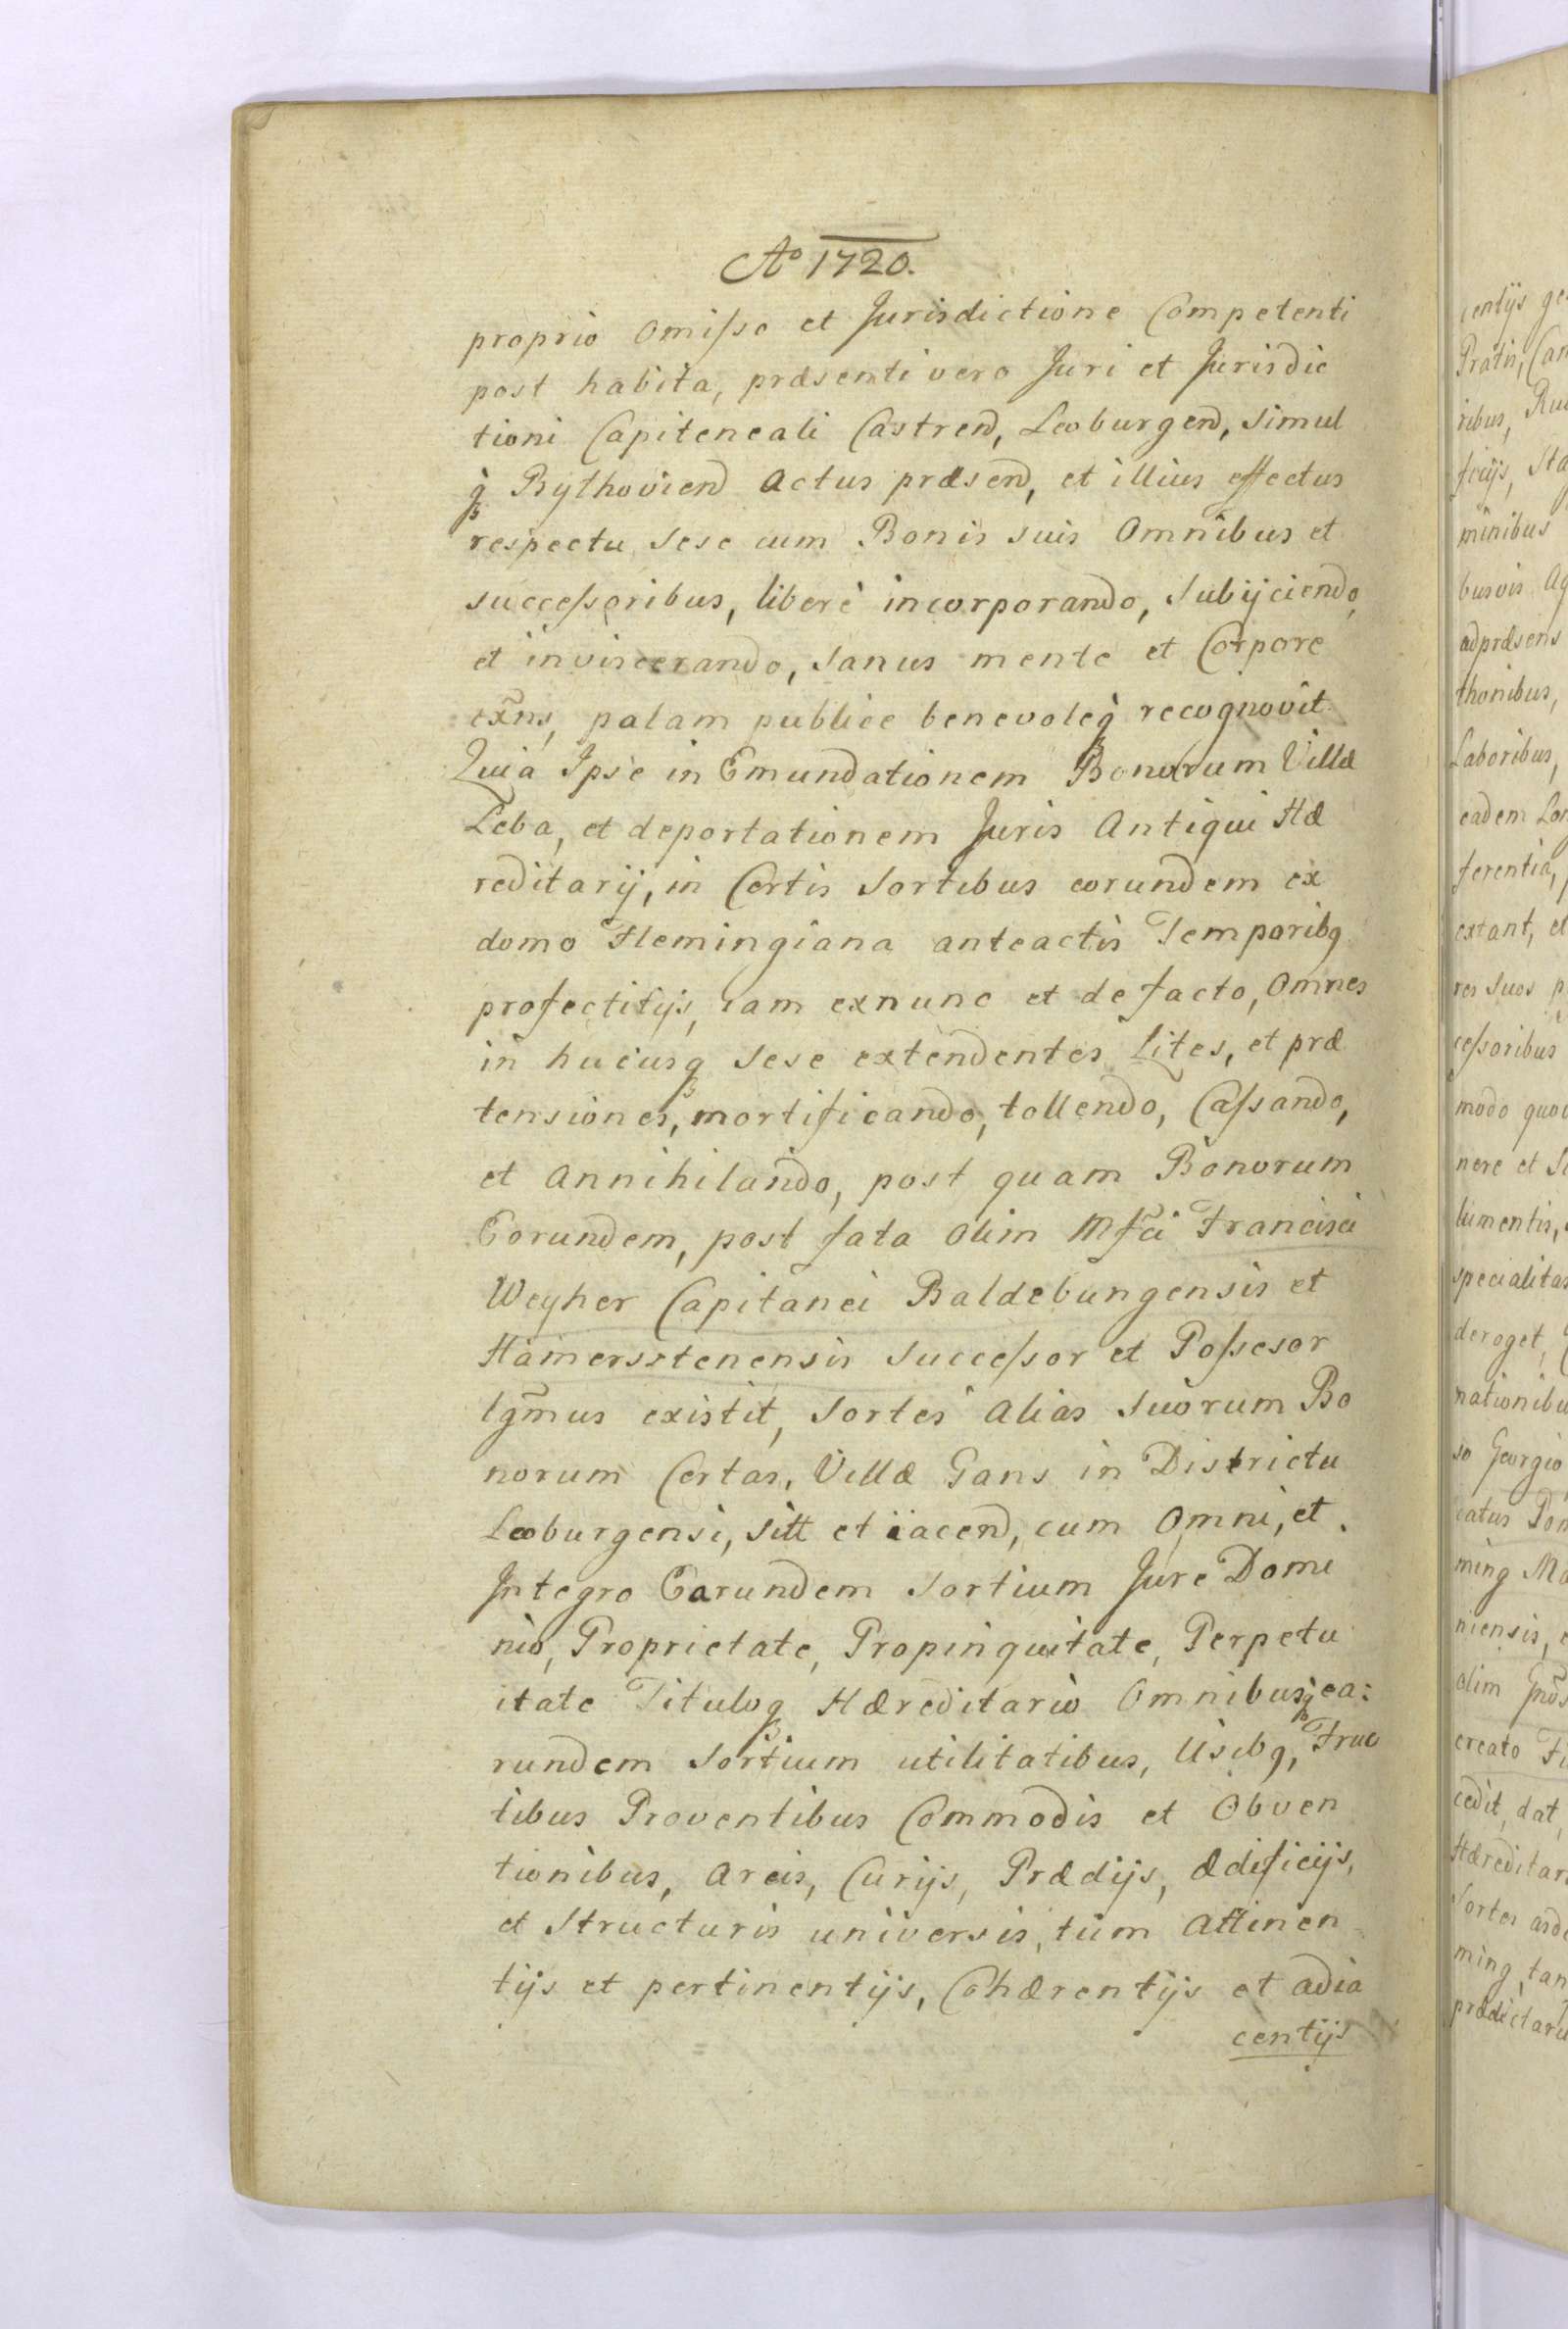 Aº 1720.
proprio omisso et Jurisdictione Competenti
post habita, præsenti vero Juri et Jurisdic
tioni Capiteneali Castrend, Leoburgend, Simul
q̀ꝫ Bythoviend Actus præsend, et illius effectus
respectu sese cum Bonis suis Omnibus et
successoribus, liberè incorporando, Subijciendo,
et inviscerando, Sanus mente et Corpore
exñs, palam publice benevoleq̀ꝫ recognovit.
Quia Ipse in Emundationem Bonorum Villæ
Leba, et deportationem Juris Antiqui Hæ
reditarij, in Certis Sortibus eorundem ex
domo Flemingiana anteactis Temporibq
profectitijs, iam exnunc et de facto, Omnes
in hucusqꝫ Sese extendentes Lites, et præ
tensiones, mortificando, tollendo, Cassando,
et Annihilando, post quam Bonorum
Eorundem, post fata olim Mfci Francisci
Weyher Capitanei Baldebungensis et
Hamersstenensis Successor et Possesor
lgm̃us existit, Sortes alias Suorum Bo
norum Certas, Villæ Gans in Districtu
Leoburgensi, Sitt et iacend, cum Omni, et
Integro Earundem Sortium Jure Domi
nio, Proprietate, Propinquitate, Perpetu
itate Tituloqꝫ Hæreditario Omnibusqꝫ ea:
rundem Sortium utilitatibus, Usibq, Fruc
tibus Proventibus Commodis et Obven
tionibus, Areis, Curijs, Prædijs, Ædificijs,
et Structuris universis, tum Attinen=
tijs et pertinentijs, Cohærentijs et adia
centijs
centijs
Pratis,
ribus,
ficijs,
minibus
busvis
adpræsens
thonibus,
Laboribus,
eadem
ferentia,
extant, et
res Suos
cessoribus
modo
nere et
lumentis,
specialitas
deroget,
nationibu
so Georgio
catus
ming
niensis,
olim
creato
cedit, dat,
Hæreditar
Sortes
ming, tan
prædictaru